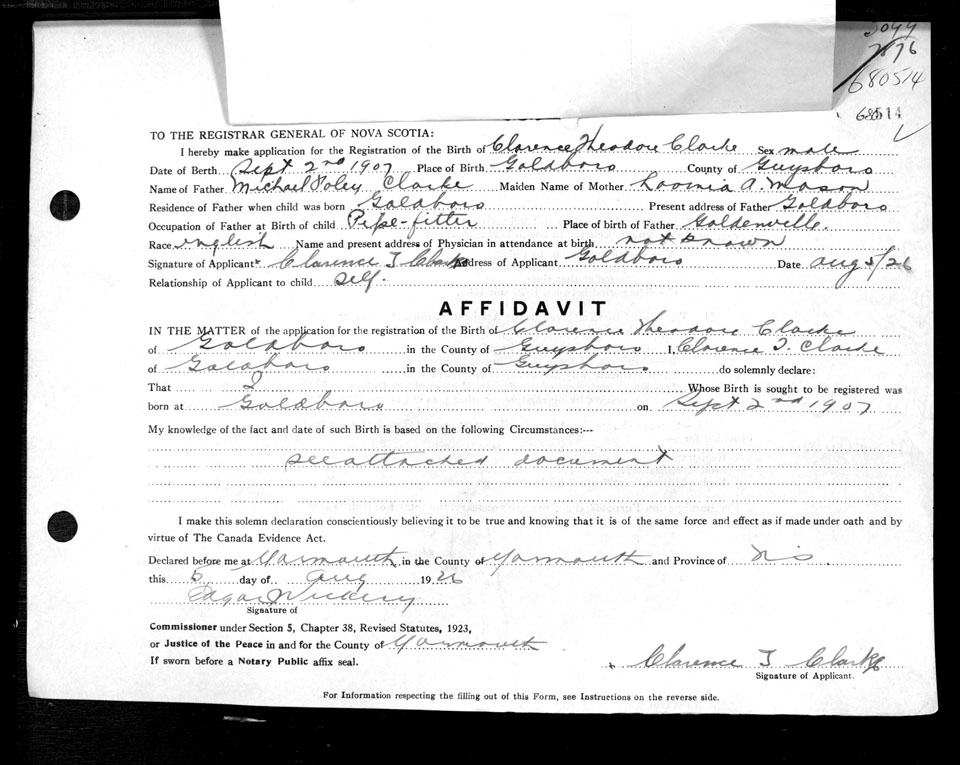 5099
7876
680514
68514
TO THE REGISTRAR GENERAL OF NOVA SCOTIA:
I hereby make application for the Registration of the Birth of Clarence Theodore Clarke Sex male
Date of Berth Sept 2nd 1907 Place of Birth Goldboro County of Guysboro
Name of Father Michael Clarke Maiden Name of Mother A. Mason
Residence of Father when child was born Goldboro Present address of Father Goldboro
Occupation of Father at Birth of child Pipe-fitter Place of birth of Father Goldenville.
Race english Name and present address of Physician in attendance at birth not known
Signature of Applicant* Clarence T Clarke Address of Applicant Goldboro Date Aug 5/26
Relationship of Applicant to child self.
AFFIDAVIT
IN THE MATTER of the application for the registration of the Birth of Clarence Theodore Clarke
of Goldboro in the County of Guysboro I, Clarence T. Clarke
of Goldboro in the County of Guysboro do solemnly declare:
That I Whose Birth is sought to be registered was
born at Goldboro on Sept 2nd 1907
My knowledge of the fact and date of such Birth is based on the following Circumstances:--
see attached document
I make this solemn declaration conscientiously believing it to be true and knowing that it is of the same force and effect as if made under oath and by
virtue of The Canada Evidence Act.
Declared before me at Yarmouth in the County of Yarmouth and Province of N.S.
this 5 day of Aug 1926
Edgar
Signature of
Commissioner under Section 5, Chapter 38, Revised Statutes, 1923,
or Justice of the Peace in and for the County of Yarmouth
If sworn before a Notary Public affix seal.
Clarence T Clarke
Signature of Applicant.
For Information respecting the filling out of this Form, see Instructions on the reverse side.